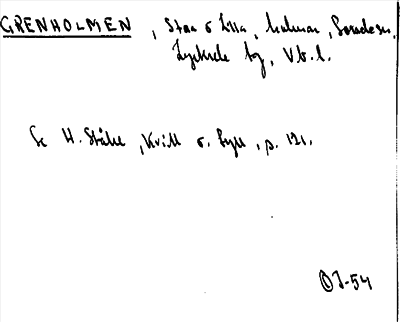 GRENHOLMEN, Stora o Lilla, holmar, Sorsele sn,
Lycksele by, Vb. l.
Se H. Ståhle, Kvill o. Syll, p. 121.
OJ-54